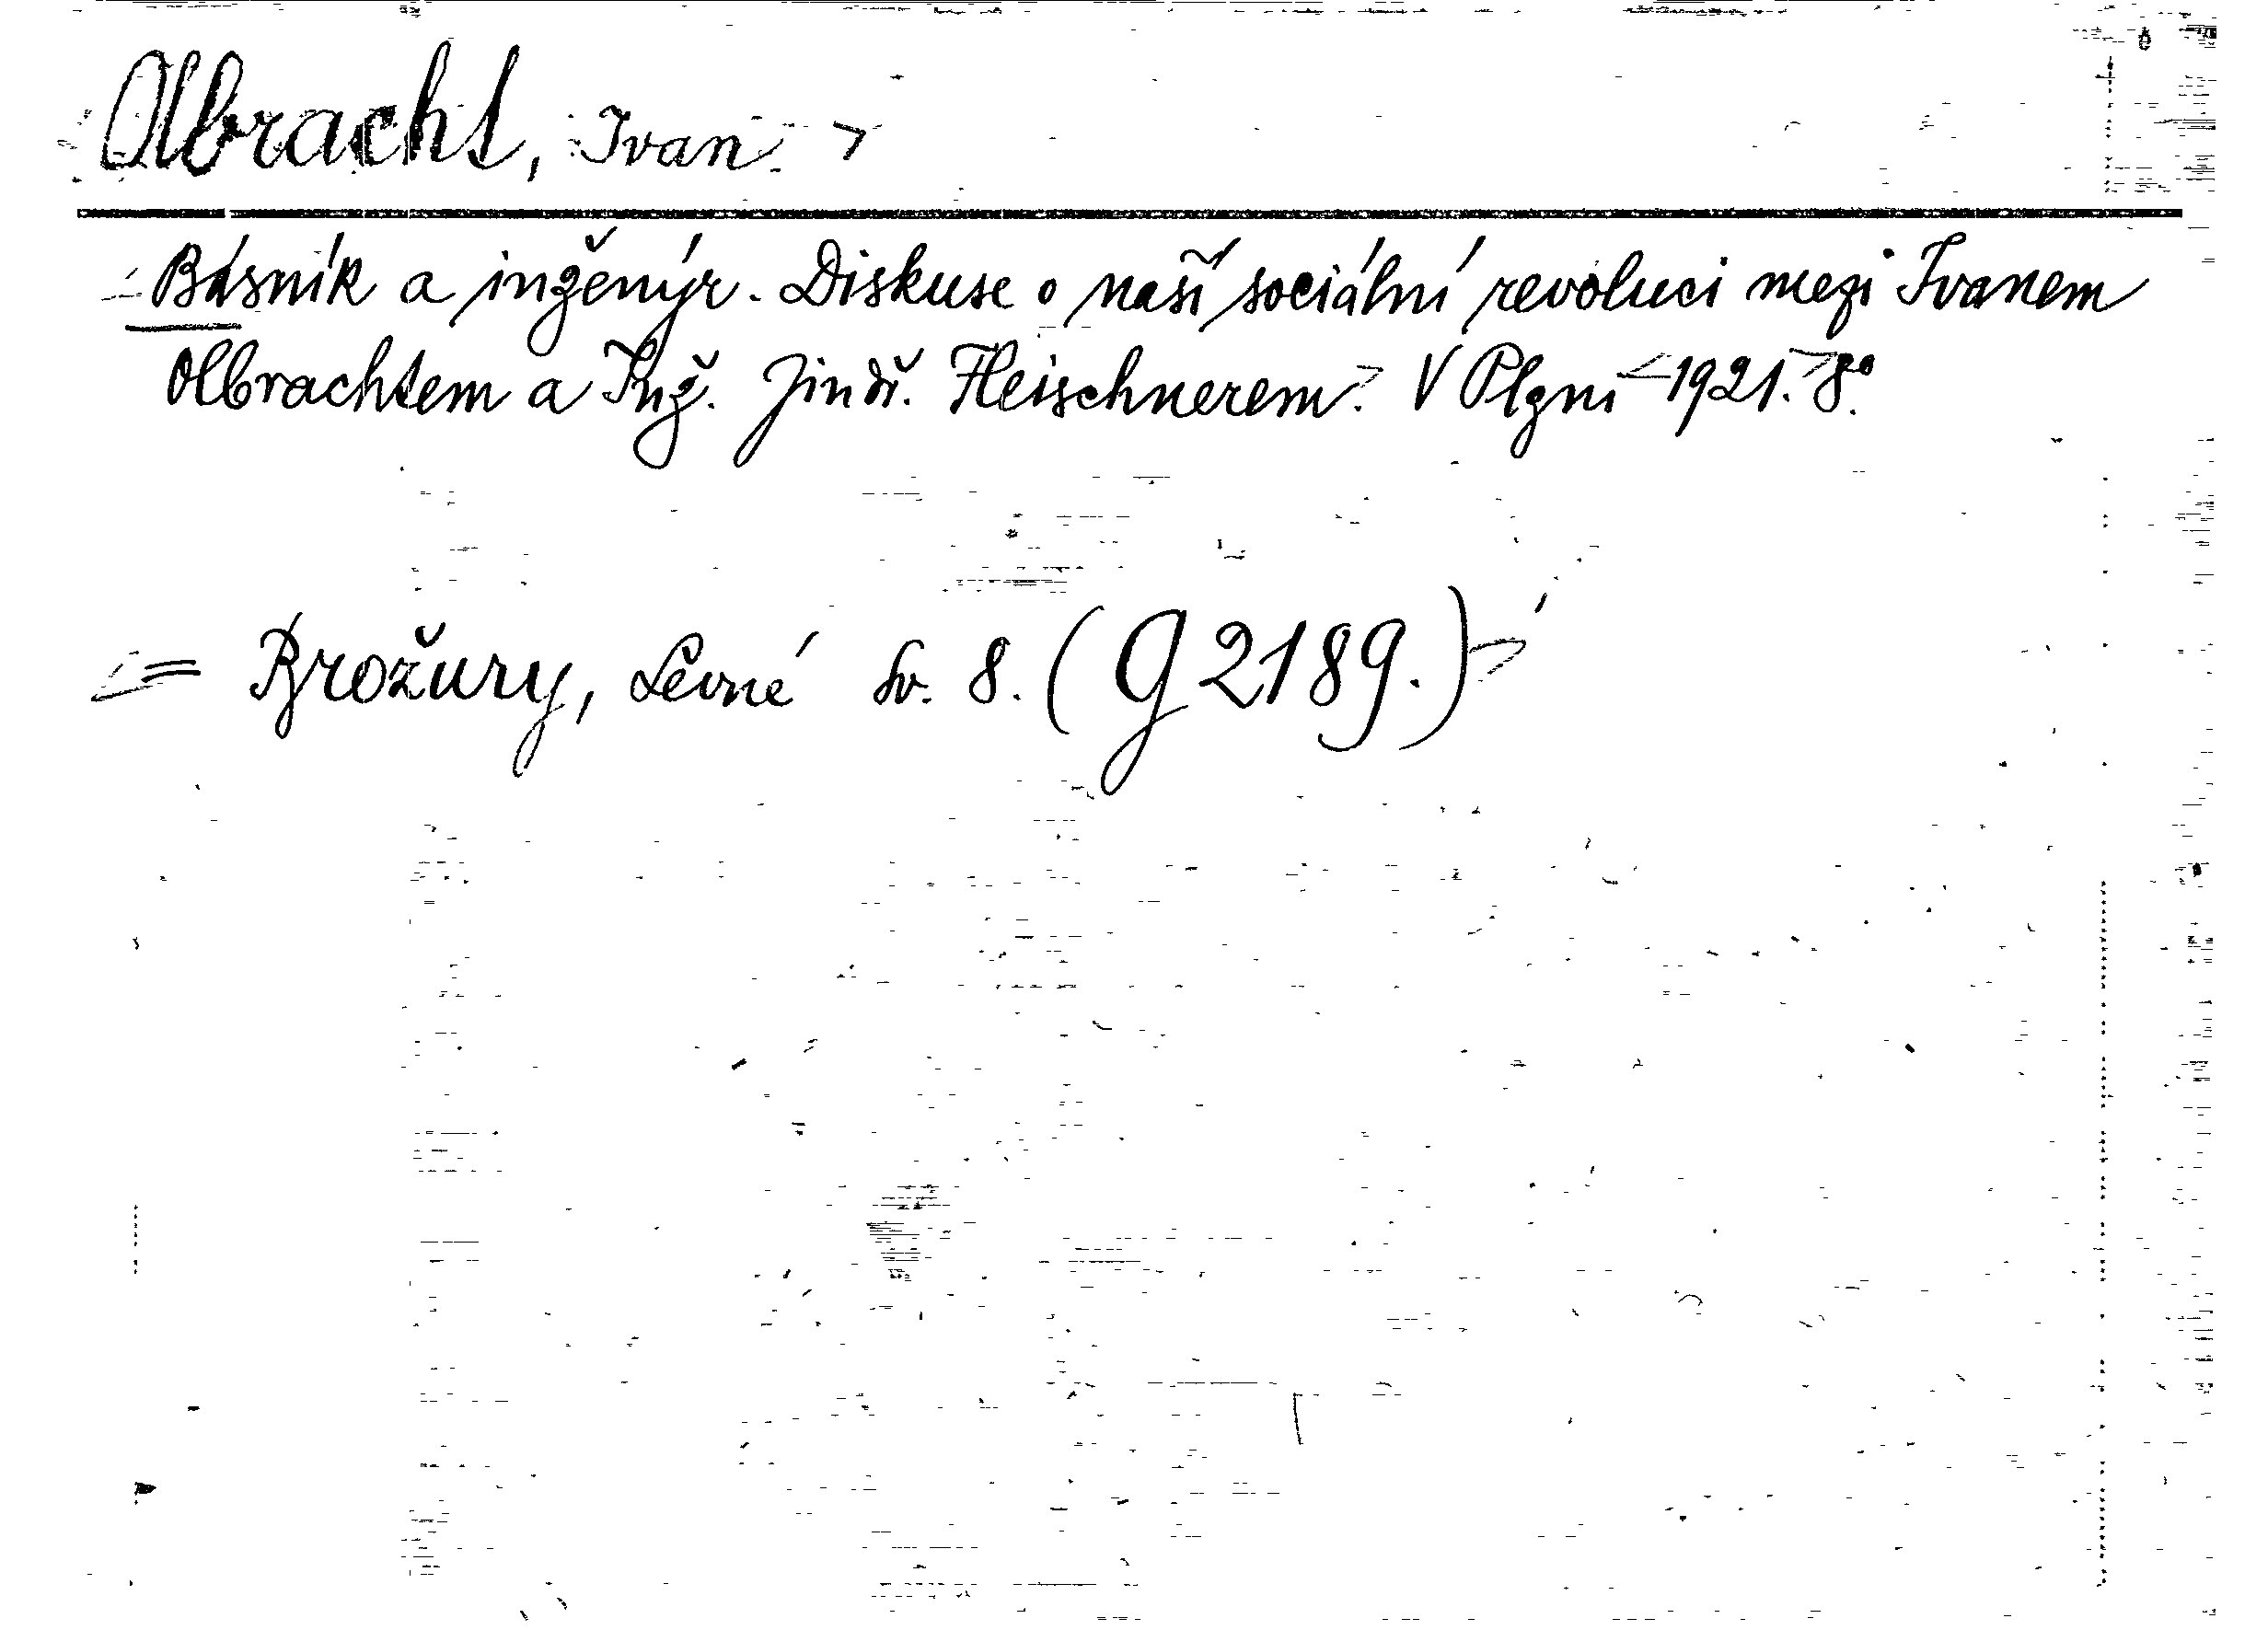 Olbracht, Ivan.
Básník a inženýr. Diskuse o naší sociální revoluci mezi Ivanem
Olbrachtem a Inž. Jindř. Fleischnerem. V Plzni 1921. 8°.
= Brožury, Levné Sv. 8. (G 2189.)